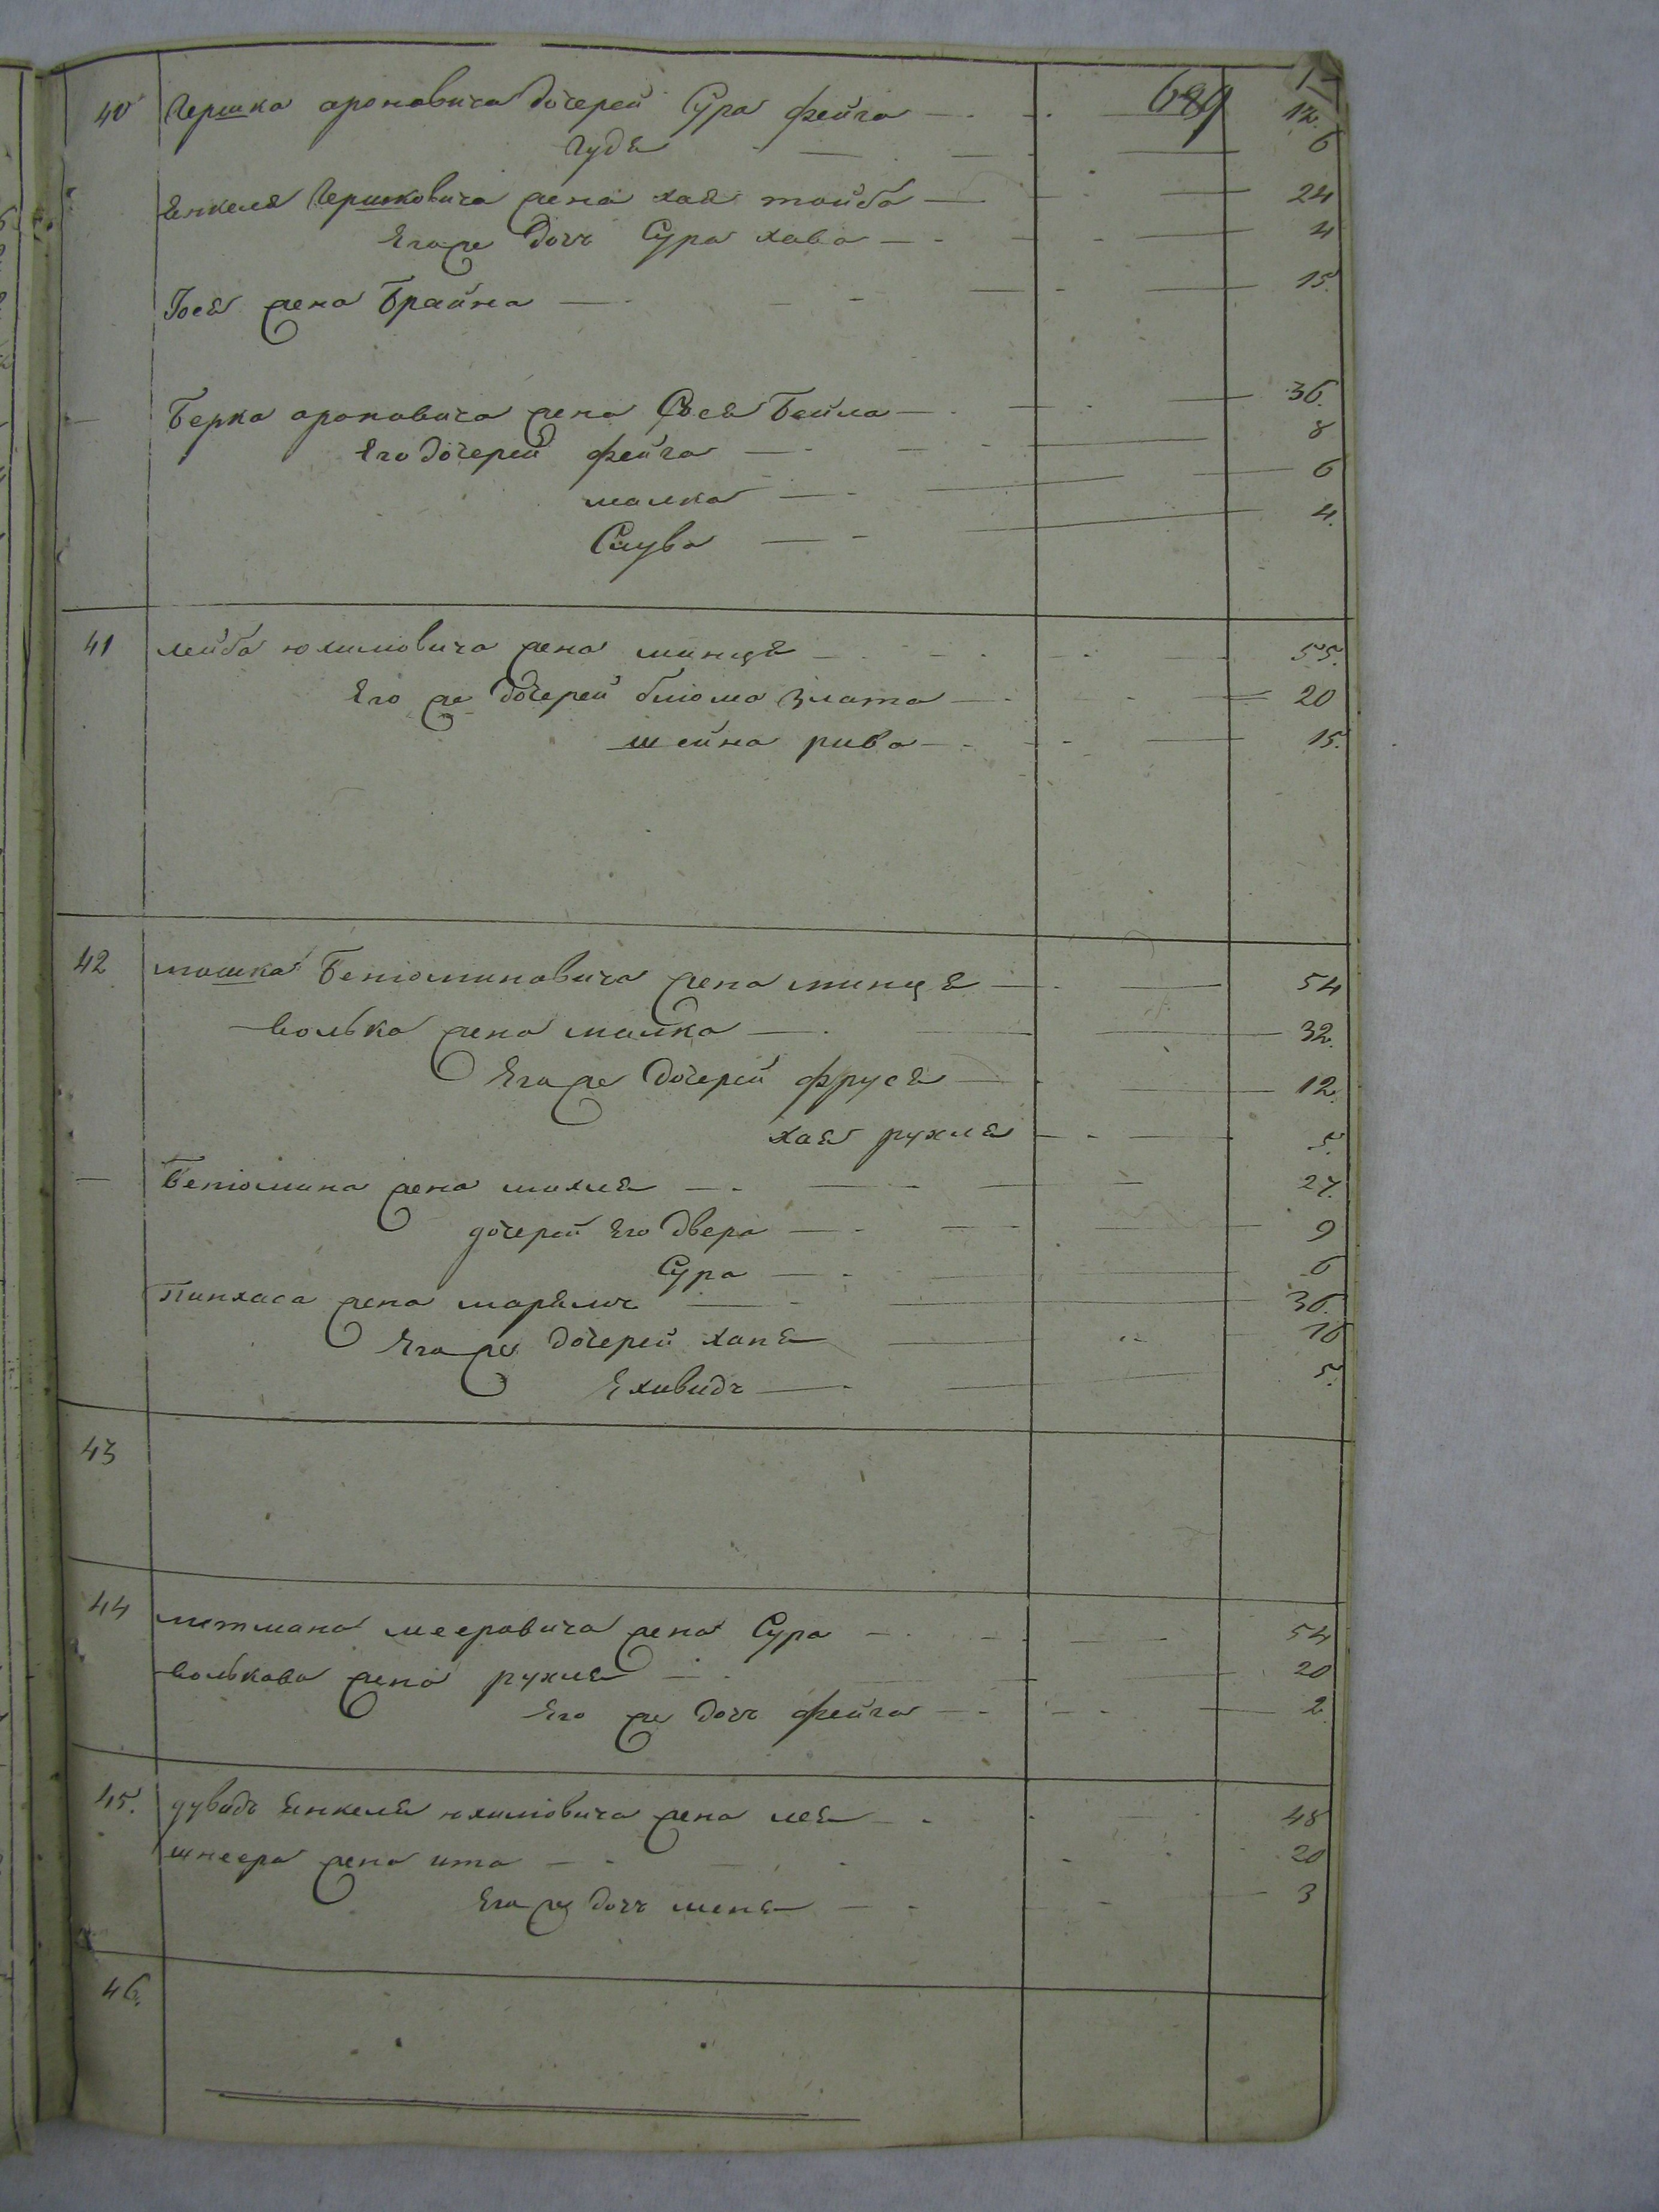 689
40 Гершка ароновича дочерей Сура фейга 12.
гудя 6
Янкеля Гершковича жена хая тойба 24
Его же дочь Сура хава 4
Іося жена Брайна 15.
Берка ароновича жена Бейла 36.
Его дочерей фейга 8
малка 6
Слува 4.
41 лейба жена минця 55.
Его же дочерей блюма злата 20
шейна рива 15.
42 мошка Бениоминовича жена минця 54
волька жена малка 32.
Его же дочерей фруся 12.
хая рухля 5.
Бениомина жена 27.
дочерей Его двера 9
Сура 6
Пинхаса жена 36.
Его же дочерей ханя 10
Ехивидъ 5.
43
44 мееровича жена Сура 54
волькова жена рухля 20
Его же дочь фейга 2
45. дувидъ Янкеля жена лея 48
шнеера жена ита 20
Его же дочь 3
46.